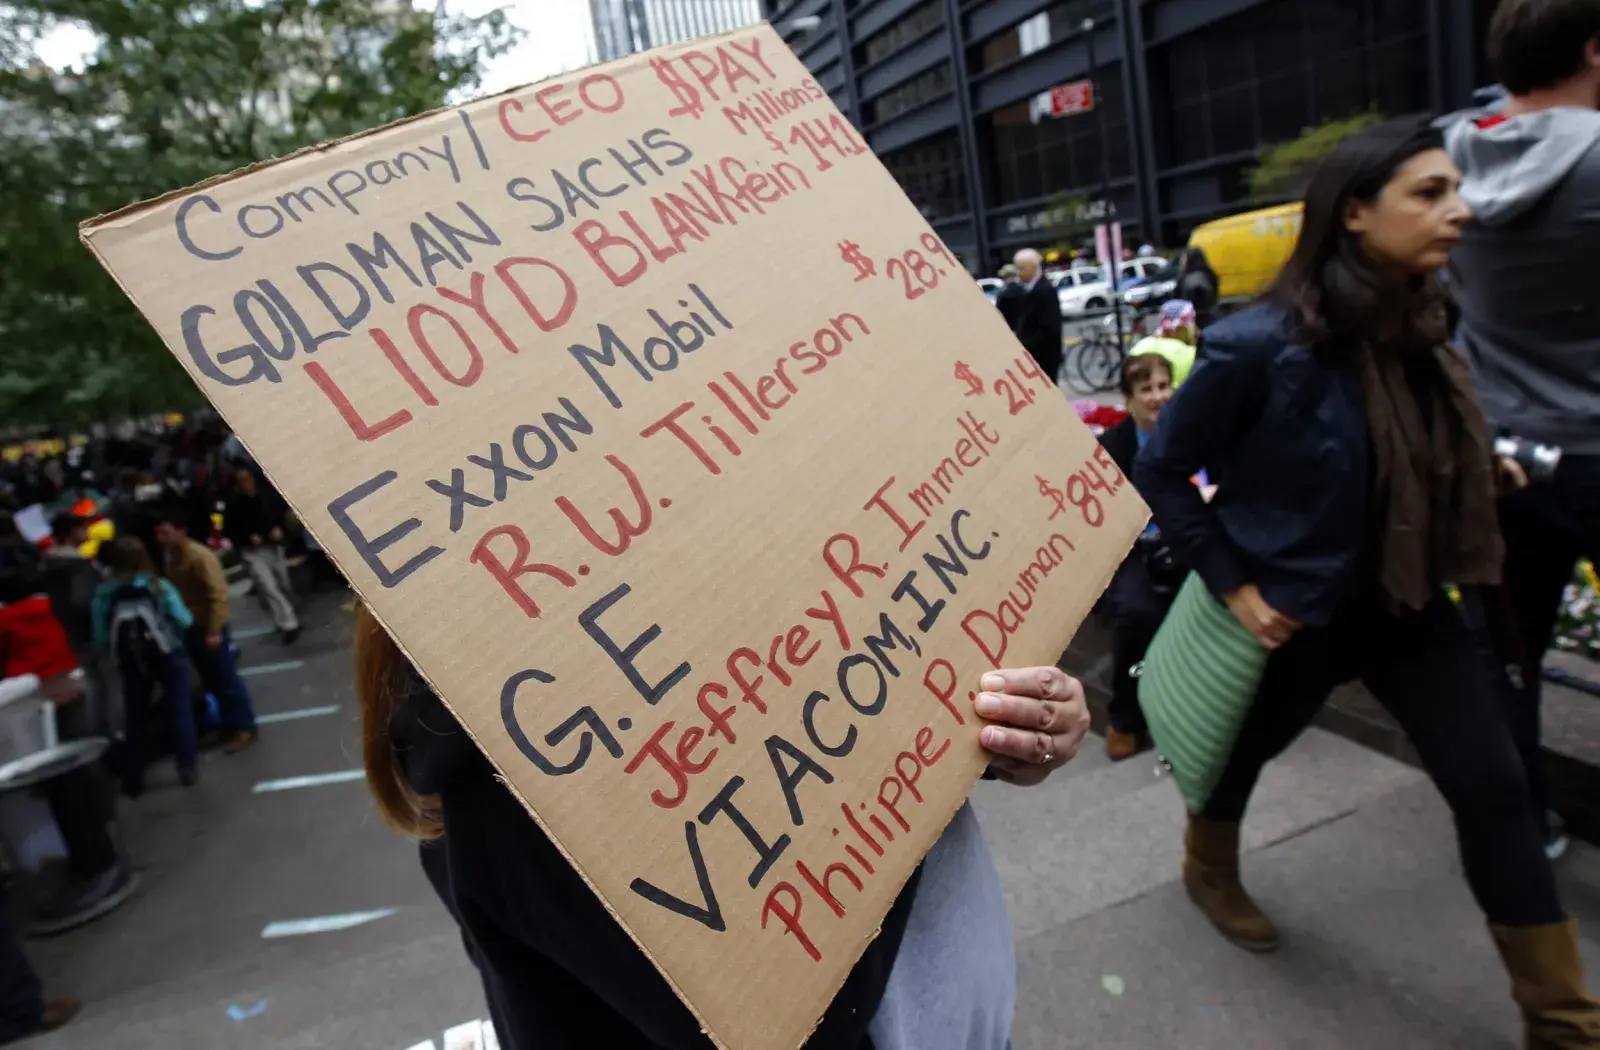 Company/ CEO $PAY
Millions
GOLDMAN SACHS
LLOYD BLANKfein $14.1
Exxon Mobil
R.W. Tillerson $28.9
G.E
Jeffrey R. Immelt $21.4
VIACOM, INC.
Philippe P. Dauman $84.5